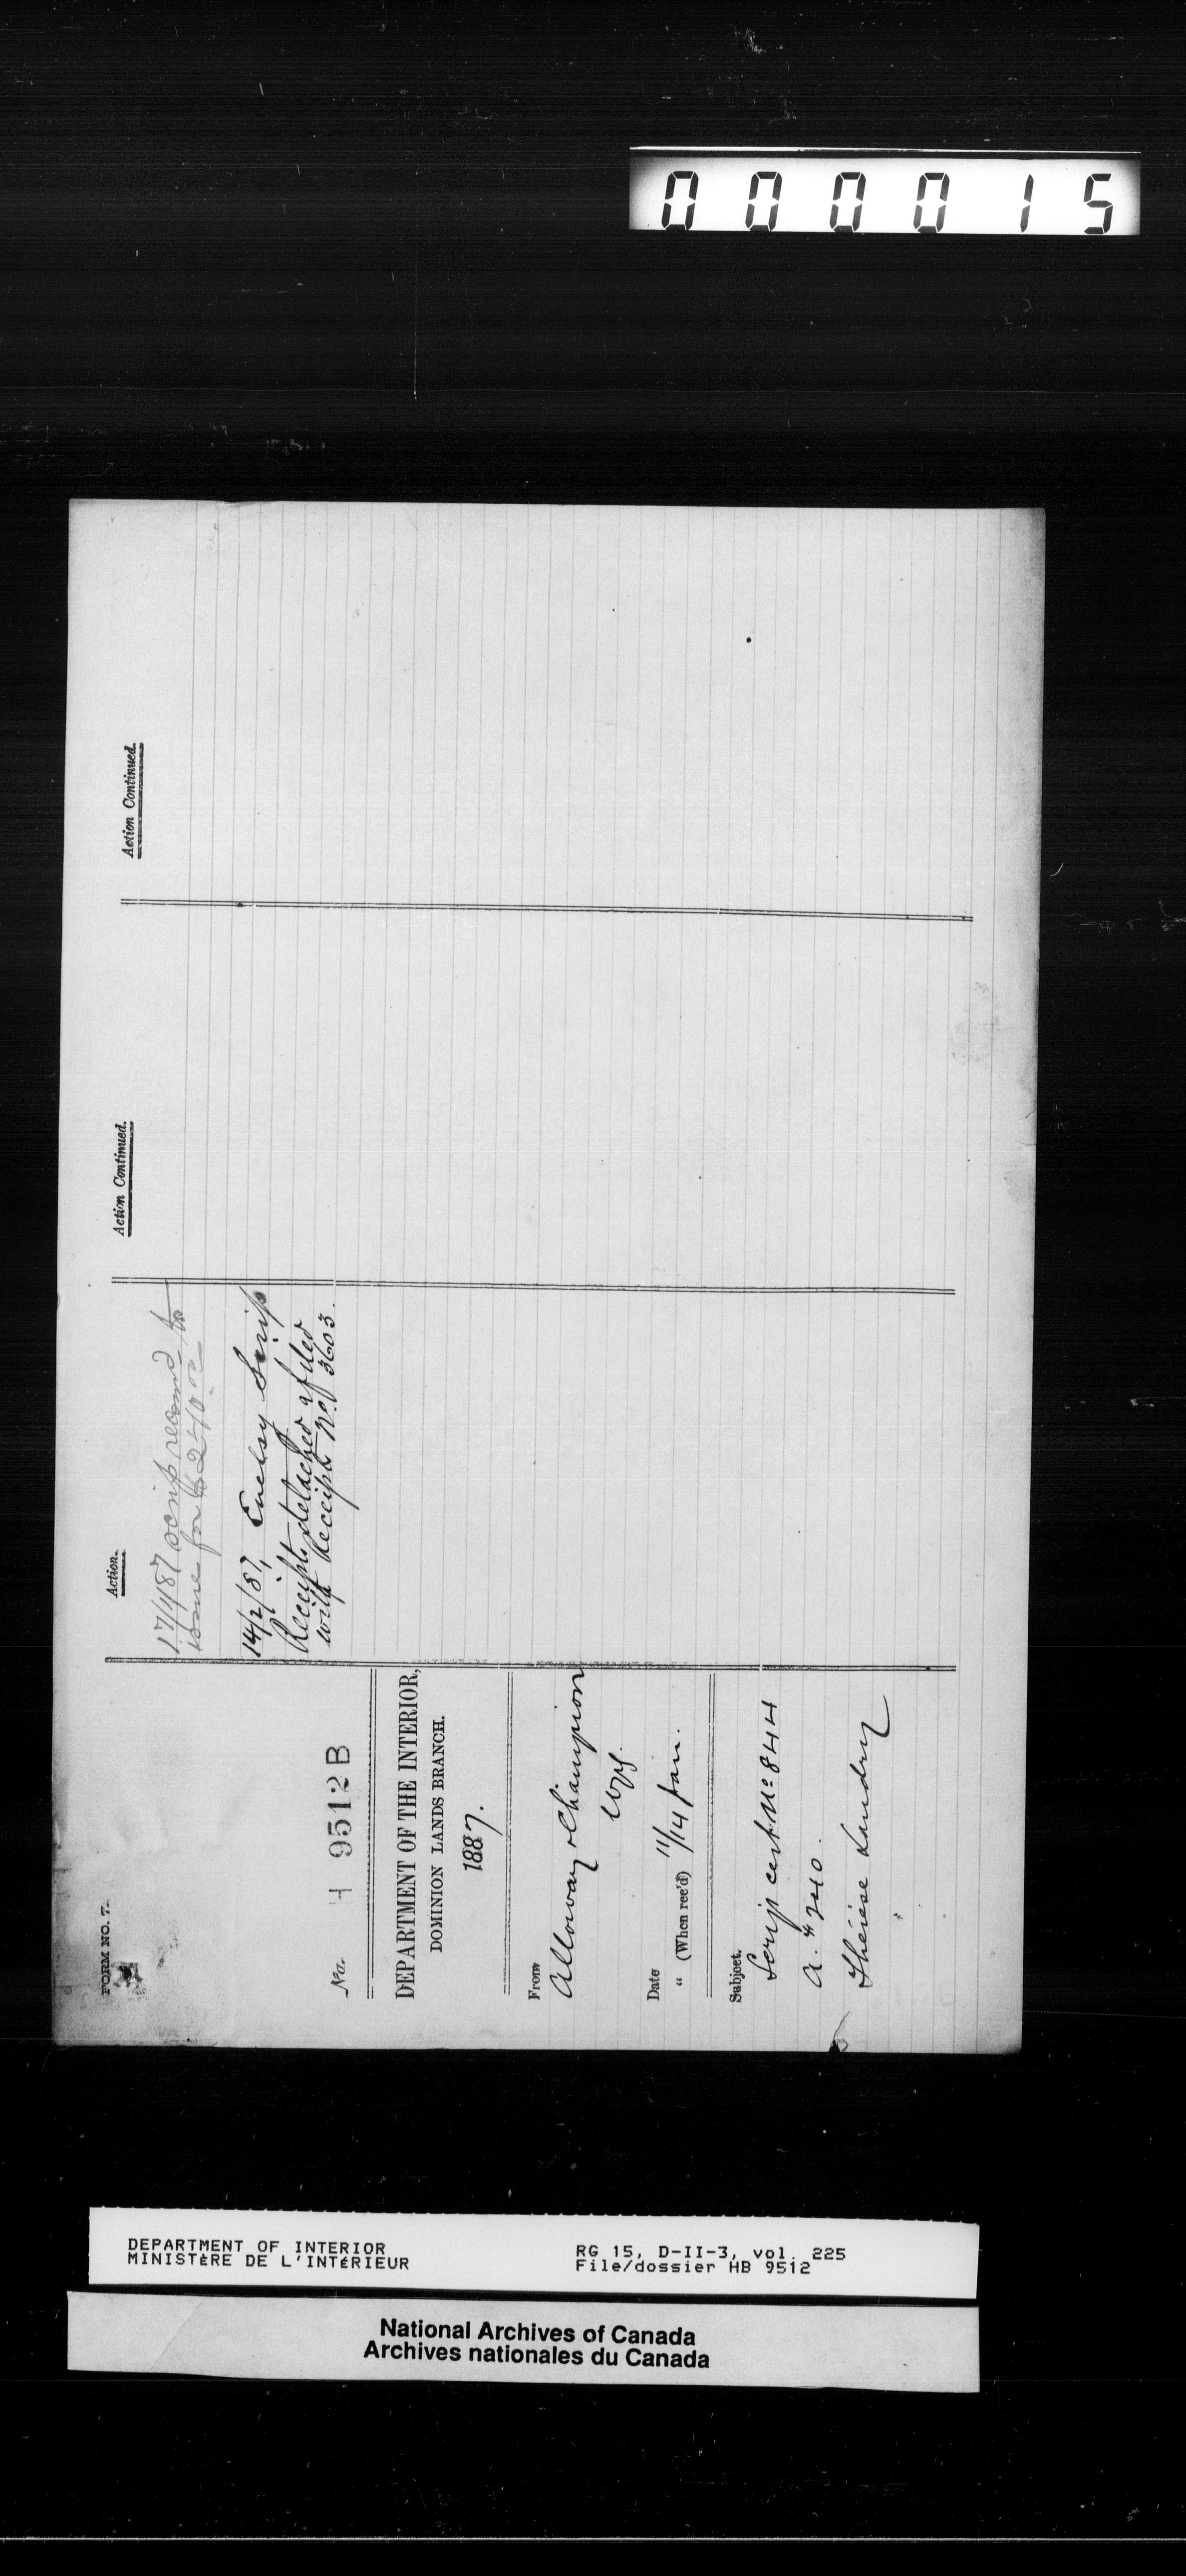 000015
FORM NO. 7.
No. H 9512 B
DEPARTMENT OF THE INTERIOR,
DOMINION LANDS BRANCH.
1887.
From
Alloway & Champion
Wpg.
Date 11/
" (When rec'd) 14 Jan.
Subject.
Scrip cert. No 844
a. $240.
Thérèse Landry
Action.
17/1/87 Scrip recomd to
issue for $240 00
14/2/87, Enclsg Scrip
Receipt detached & filed
with Receipt No 3603.
Action Continued.
Action Continued.
DEPARTMENT OF INTERIOR
MINISTÈRE DE L'INTÉRIEUR
RG 15, D-II-3, vol. 225
File/dossier HB 9512
National Archives of Canada
Archives nationales du Canada